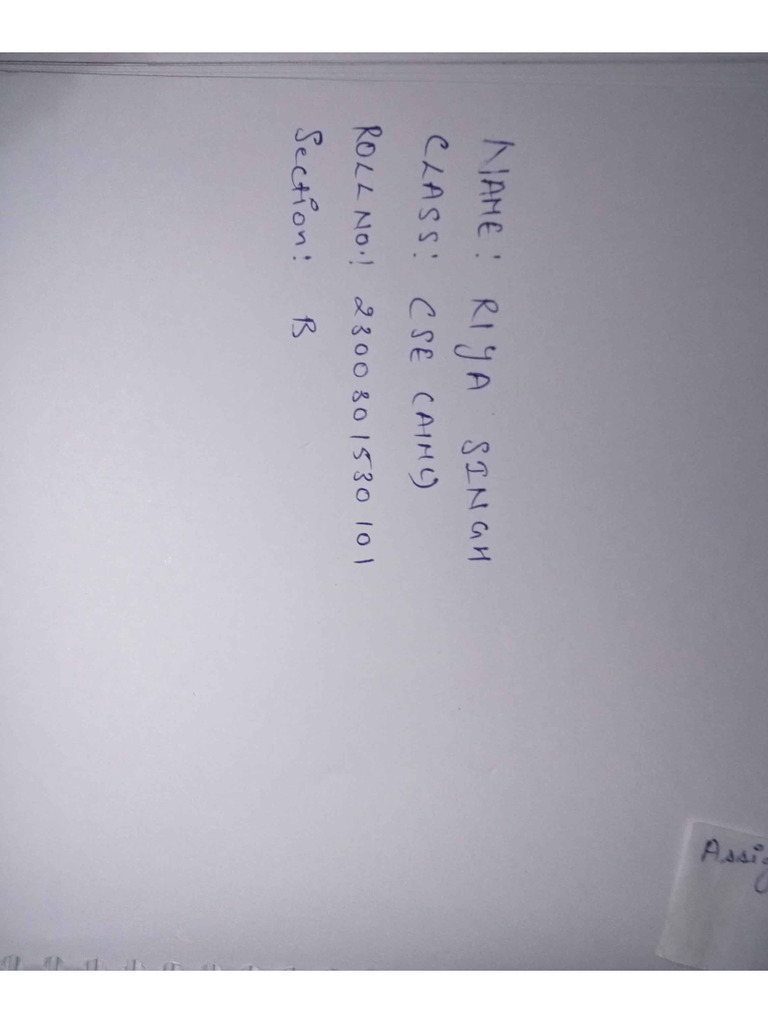 NAME: RIYA SINGH
CLASS: CSE (AIML)
ROLL NO.: 2300301530101
Section: B
Assig